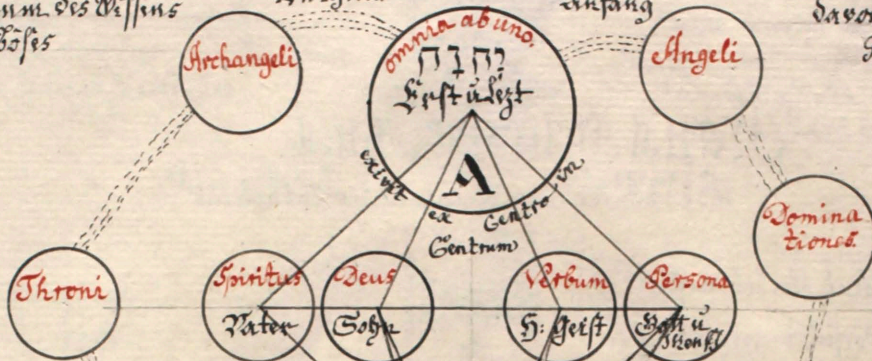 des Wissens
Böses
Anfang
Archangeli
omnia ab uno.
יהוה
Erst u letzt
A
Angeli
exivit ex Centro in
Centrum
Dominationes.
Throni
Spiritus
Vater
Deus
Sohn
Verbum
H: Geist
Persona
Gott u
Mensch